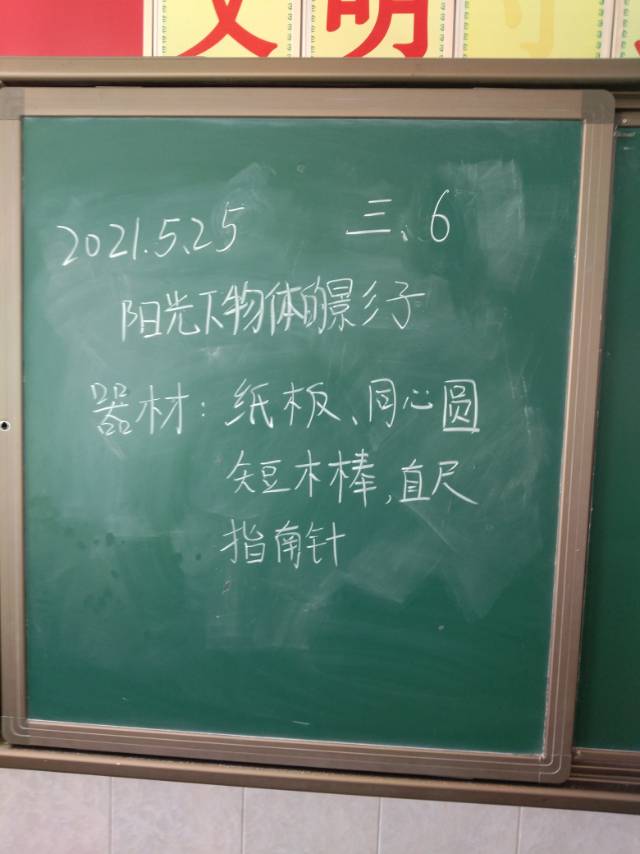 文明
2021.5.25 三、6
阳光下物体的影子
器材：纸板、同心圆
短木棒，直尺
指南针